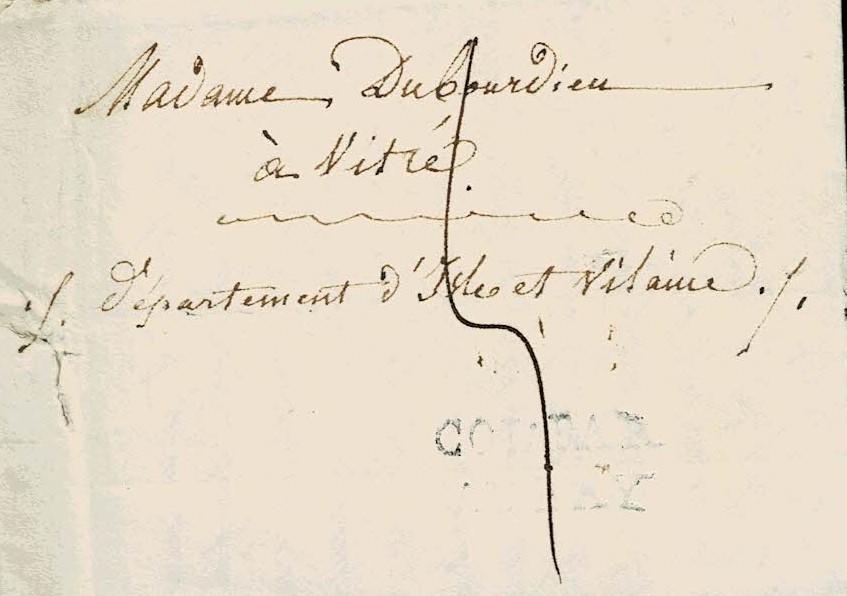 Madame Dubourdieu
à Vitré
./. département d'Isle et Vilaine ./.